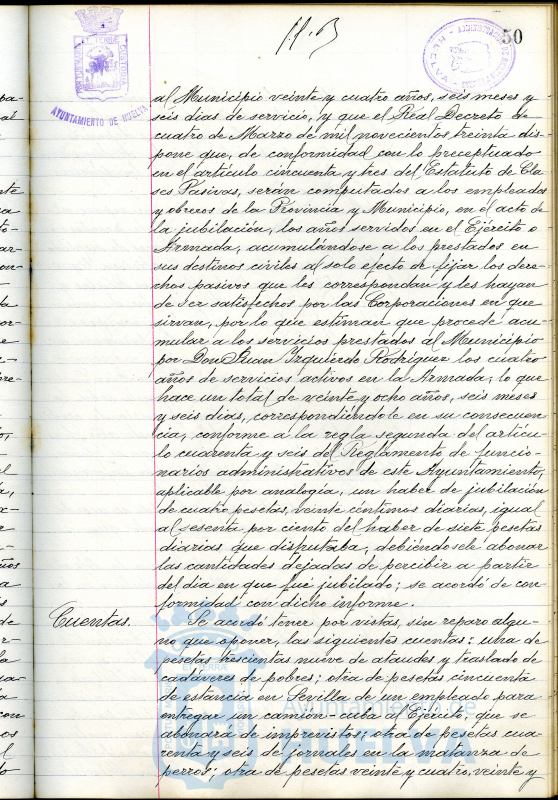 50
AYUNTAMIENTO DE HUELVA
al Municipio veinte y cuatro años, seis meses y
seis dias de servicio, y que el Real Decreto de
cuatro de Marzo de mil novecientos treinta dis-
pone que, de conformidad con lo preceptuado
en el artículo cincuenta y tres del Estatuto de Cla-
ses Pasivas, serán computados a los empleados
y obreros de la Provincia y Municipio, en el acto de
la jubilación, los años servidos en el Ejército o
Armada, acumulándose a los prestados en
sus destinos civiles al solo efecto de fijar los dere-
chos pasivos que les correspondan y les hayan
de ser satisfechos por las Corporaciones en que
sirvan, por lo que estiman que procede acu-
mular a los servicios prestados al Municipio
por Don Juan Izquierdo Rodriguez los cuatro
años de servicios activos en la Armada, lo que
hace un total de veinte y ocho años, seis meses
y seis dias, correspondiéndole en su consecuen-
cia, conforme a la regla segunda del artícu-
lo cuarenta y seis del Reglamento de funcio-
narios administrativos de este Ayuntamiento,
aplicable por analogía, un haber de jubilación
de cuatro pesetas, veinte céntimos diarias, igual
al sesenta por ciento del haber de siete pesetas
diarias que disfrutaba, debiéndosele abonar
las cantidades dejadas de percibir a partir
del dia en que fué jubilado; se acordó de con-
formidad con dicho informe.
Cuentas.
Se acordó tener por vistas, sin reparo algu-
no que oponer, las siguientes cuentas: una de
pesetas trescientas nueve de ataudes y traslado de
cadáveres de pobres; otra de pesetas cincuenta
de estancia en Sevilla de un empleado para
entregar un camión-cuba al Ejército, que se
abonara de imprevistos; otra de pesetas cua-
renta y seis de jornales en la matanza de
perros; otra de pesetas veinte y cuatro, veinte y
Ayuntamiento de
HUELVA